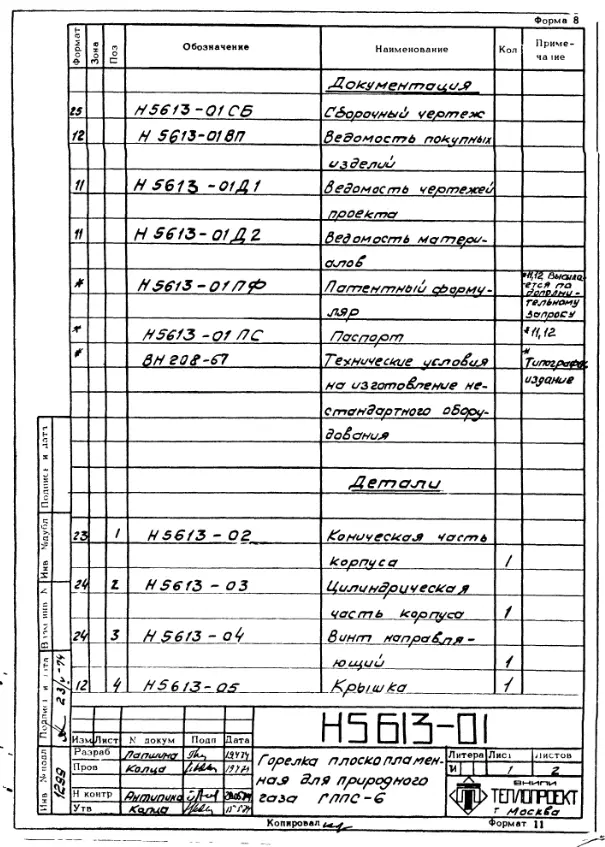 Форма 8
Формат Зона Поз Обозначение Наименование Кол Примечание
Документация
25 Н5613-01СБ Сборочный чертеж
12 Н 5613-01ВП Ведомость покупных
изделий
11 Н 5613-01Д1 Ведомость чертежей
проекта
11 Н 5613-01Д2 Ведомость матери-
алов
* Н5613-01ПФ Патентный форму- *11,12 Высыла-
ется по
дополни-
ляр тельному
запросу
* Н5613-01 ПС Паспорт *11,12
* ВН 208-67 Технические условия * Типографск.
на изготовление не- издание
стандартного обору-
дования
Детали
23 1 Н5613-02 Коническая часть
корпуса 1
24 2 Н5613-03 Цилиндрическая
часть корпуса 1
24 3 Н5613-04 Винт направля-
ющий 1
12 4 Н5613-05 Крышка 1
Инв № подл Подпись и дата Взам инв № Инв № дубл Подпись и дата
1299 23/V-74
Н5613-01
Изм Лист N докум Подп Дата
Разраб Лапшина
Пров Колца
Н контр Антипина
Утв Колца
Горелка плоскопламен-
ная для природного
газа ГППС-6
Литера Лист Листов
И 1 2
ВНИПИ
ТЕПЛОПРОЕКТ
г Москва
Копировал Формат 11